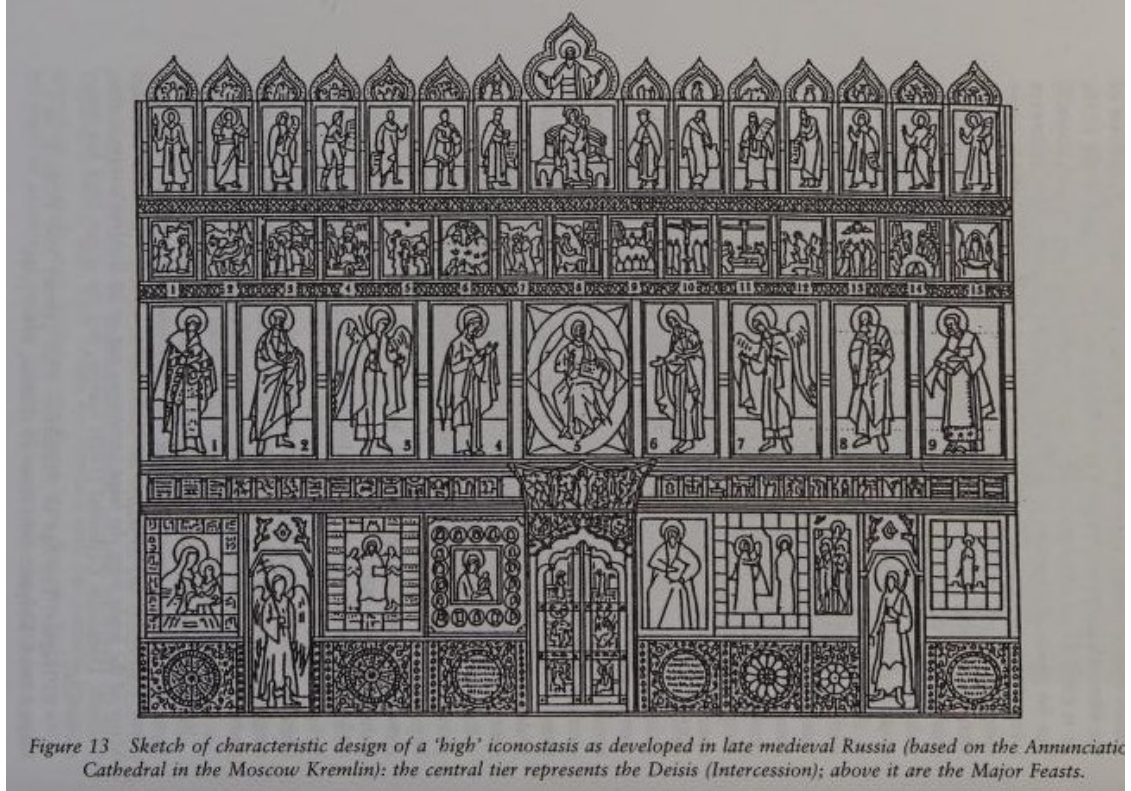 1 2 3 4 5 6 7 8 9 10 11 12 13 14 15
1 2 3 4 5 6 7 8 9
Figure 13 Sketch of characteristic design of a 'high' iconostasis as developed in late medieval Russia (based on the Annunciatio
Cathedral in the Moscow Kremlin): the central tier represents the Deisis (Intercession); above it are the Major Feasts.